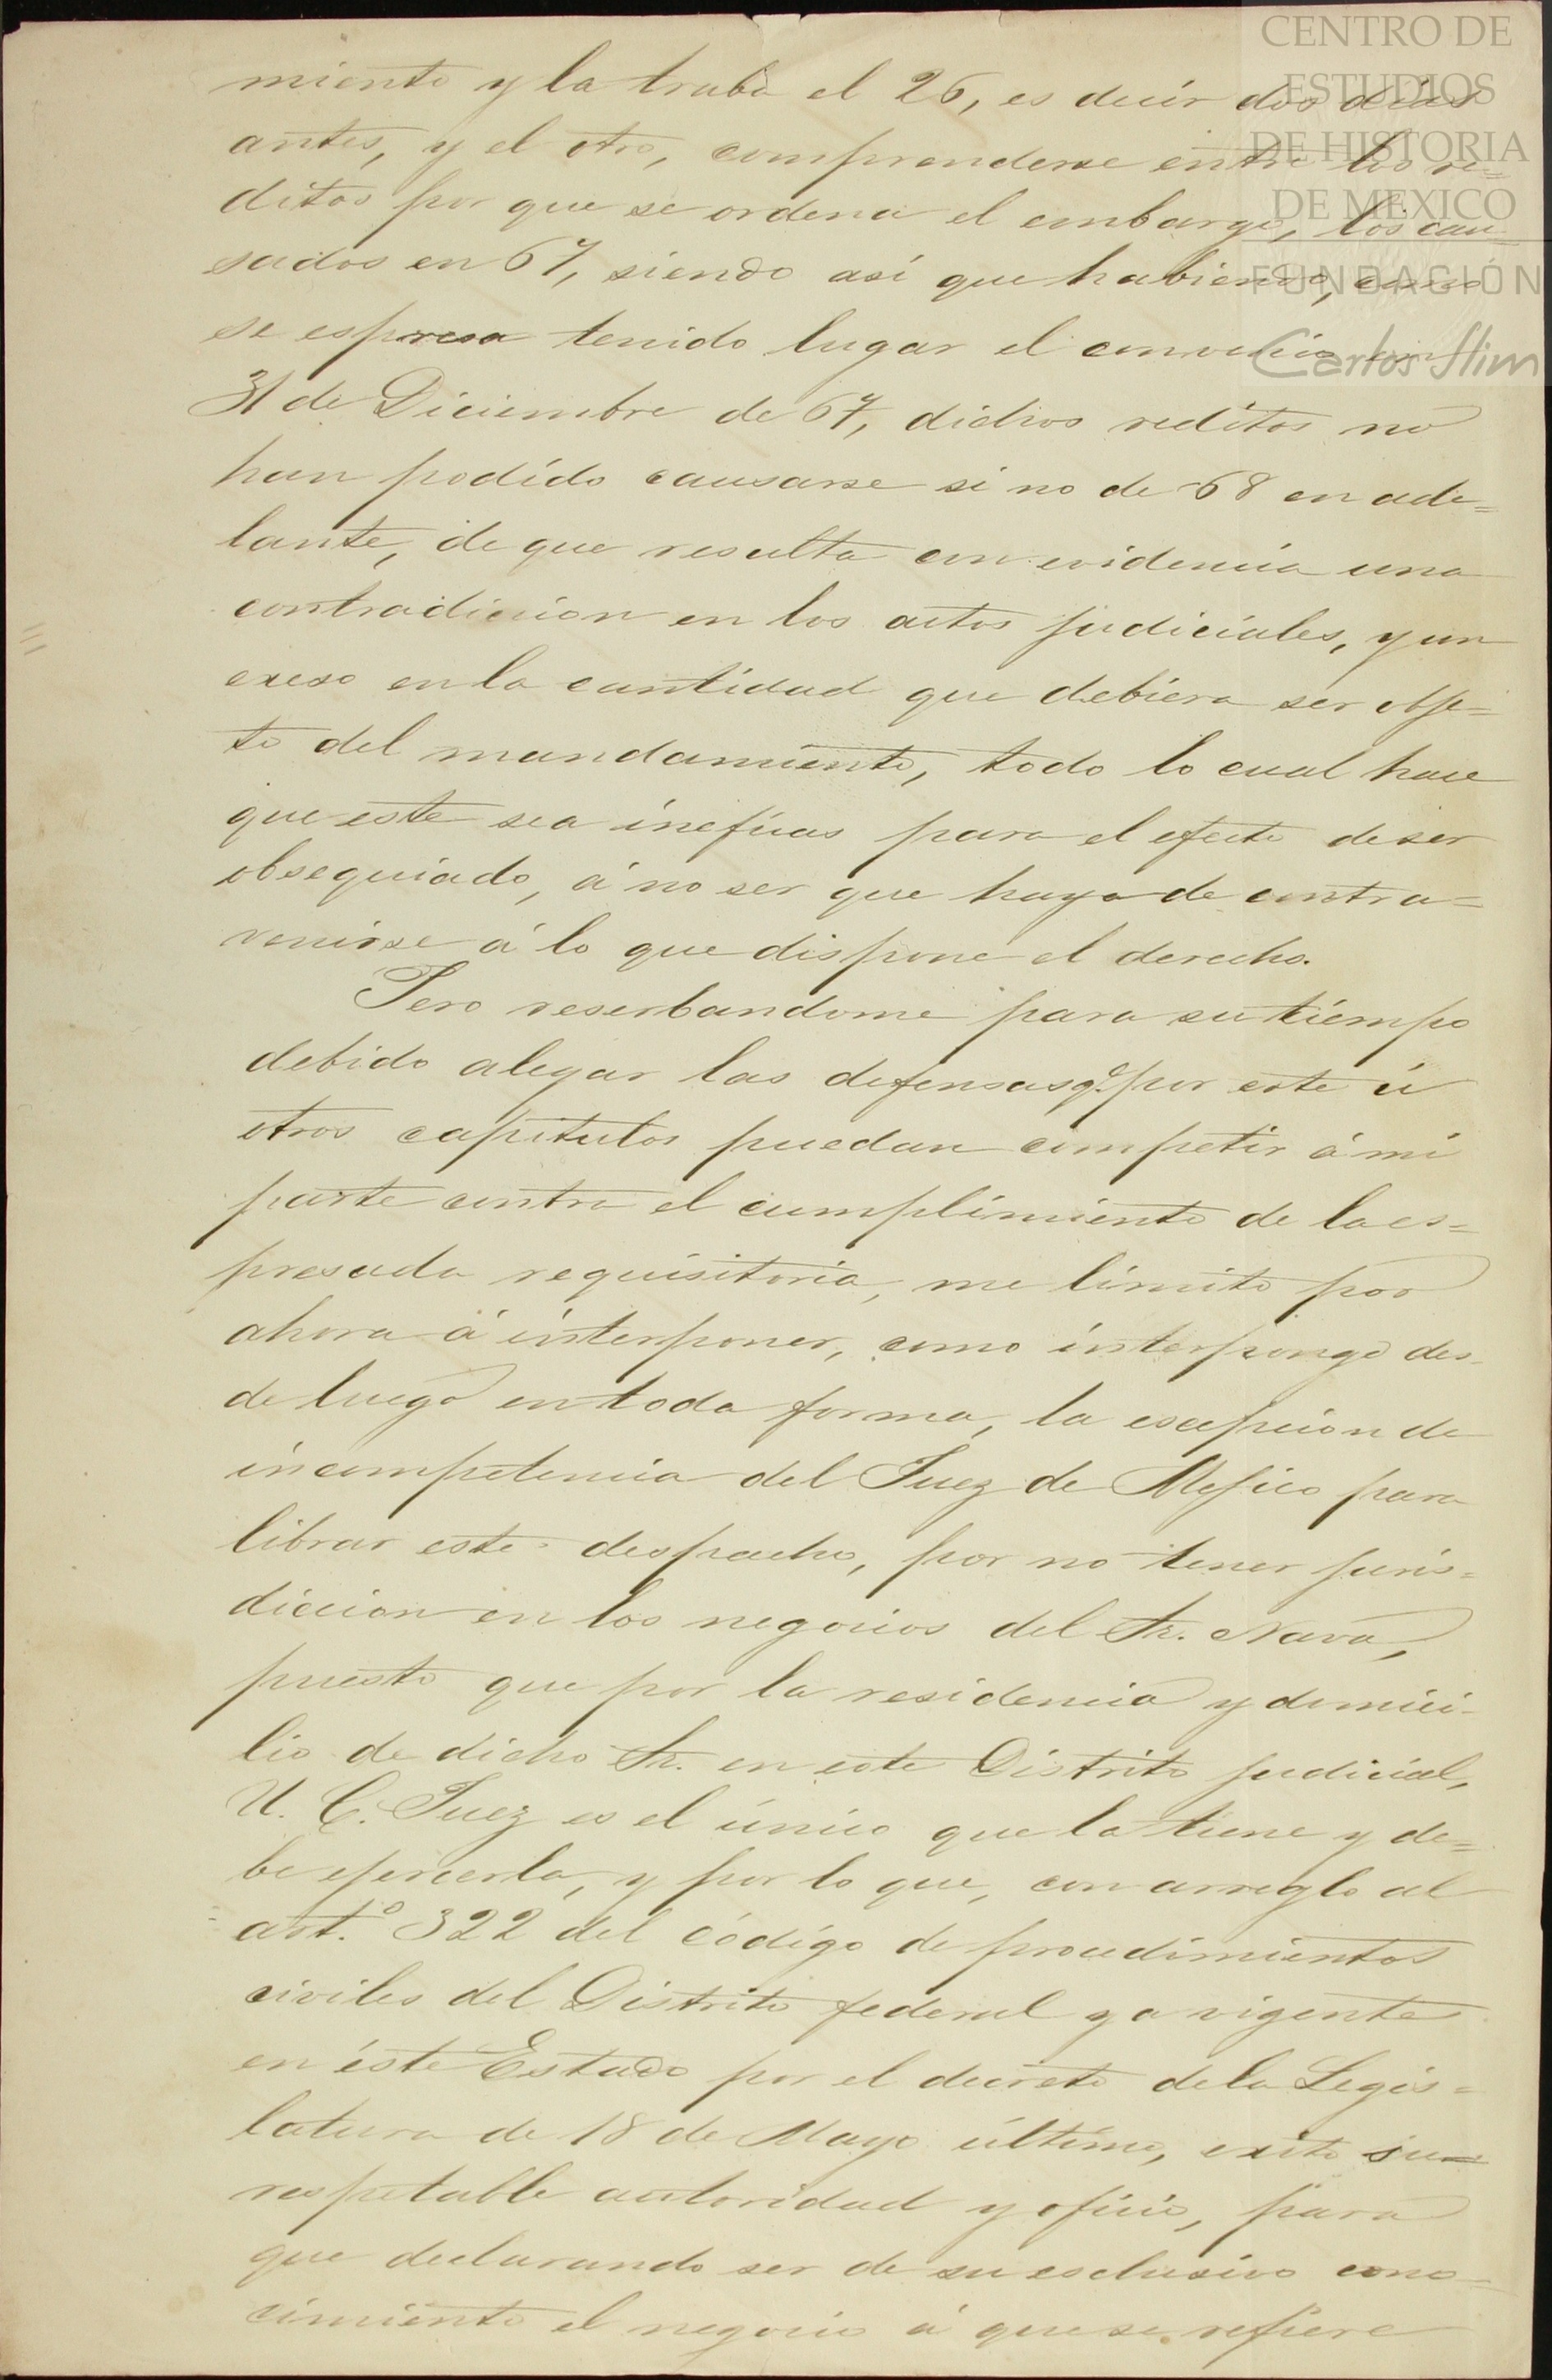 CENTRO DE
ESTUDIOS
DE HISTORIA
DE MEXICO
FUNDACIÓN
Carlos Slim
miento y la traba el 26, es decir dos dias
antes, y el otro, comprenderse entre los re=
ditos por que se ordena el embargo, los cau=
sados en 67, siendo así que habiendo, como
se espresa tenido lugar el convenio en
31 de Diciembre de 67, dichos reditos no
han podido causarse si no de 68 en ade=
lante, de que resulta con evidencia una
contradiccion en los actos judiciales, y un
exeso en la cantidad que debiera ser obje=
to del mandamiento, todo lo cual hace
que este sea ineficas para el efecto de ser
obsequiado, á no ser que haya de contra=
venirse á lo que dispone el derecho.
Pero reserbandome para su tiempo
debido alegar las defensas q.e por este ú
otros capitulos puedan competir á mi
parte contra el cumplimiento de la es=
presada requisitoria, me limito por
ahora á interponer, como interpongo des-
de luego en toda forma, la escepcion de
incompetencia del Juez de Mejico para
librar este despacho, por no tener juris=
diccion en los negocios del Sr. Nava,
puesto que por la residencia y domici-
lio de dicho Sr. en este Distrito judicial,
U. C. Juez es el único que la tiene y de=
be ejercerla, y por lo que, con arreglo al
art.o 322 del código de procedimientos
civiles del Distrito federal ya vigente
en éste Estado por el decreto de la Legis=
latura de 18 de Mayo último, exito su
respetable autoridad y oficio, para
que declarando ser de su esclusivo cono=
cimiento el negocio á que se refiere